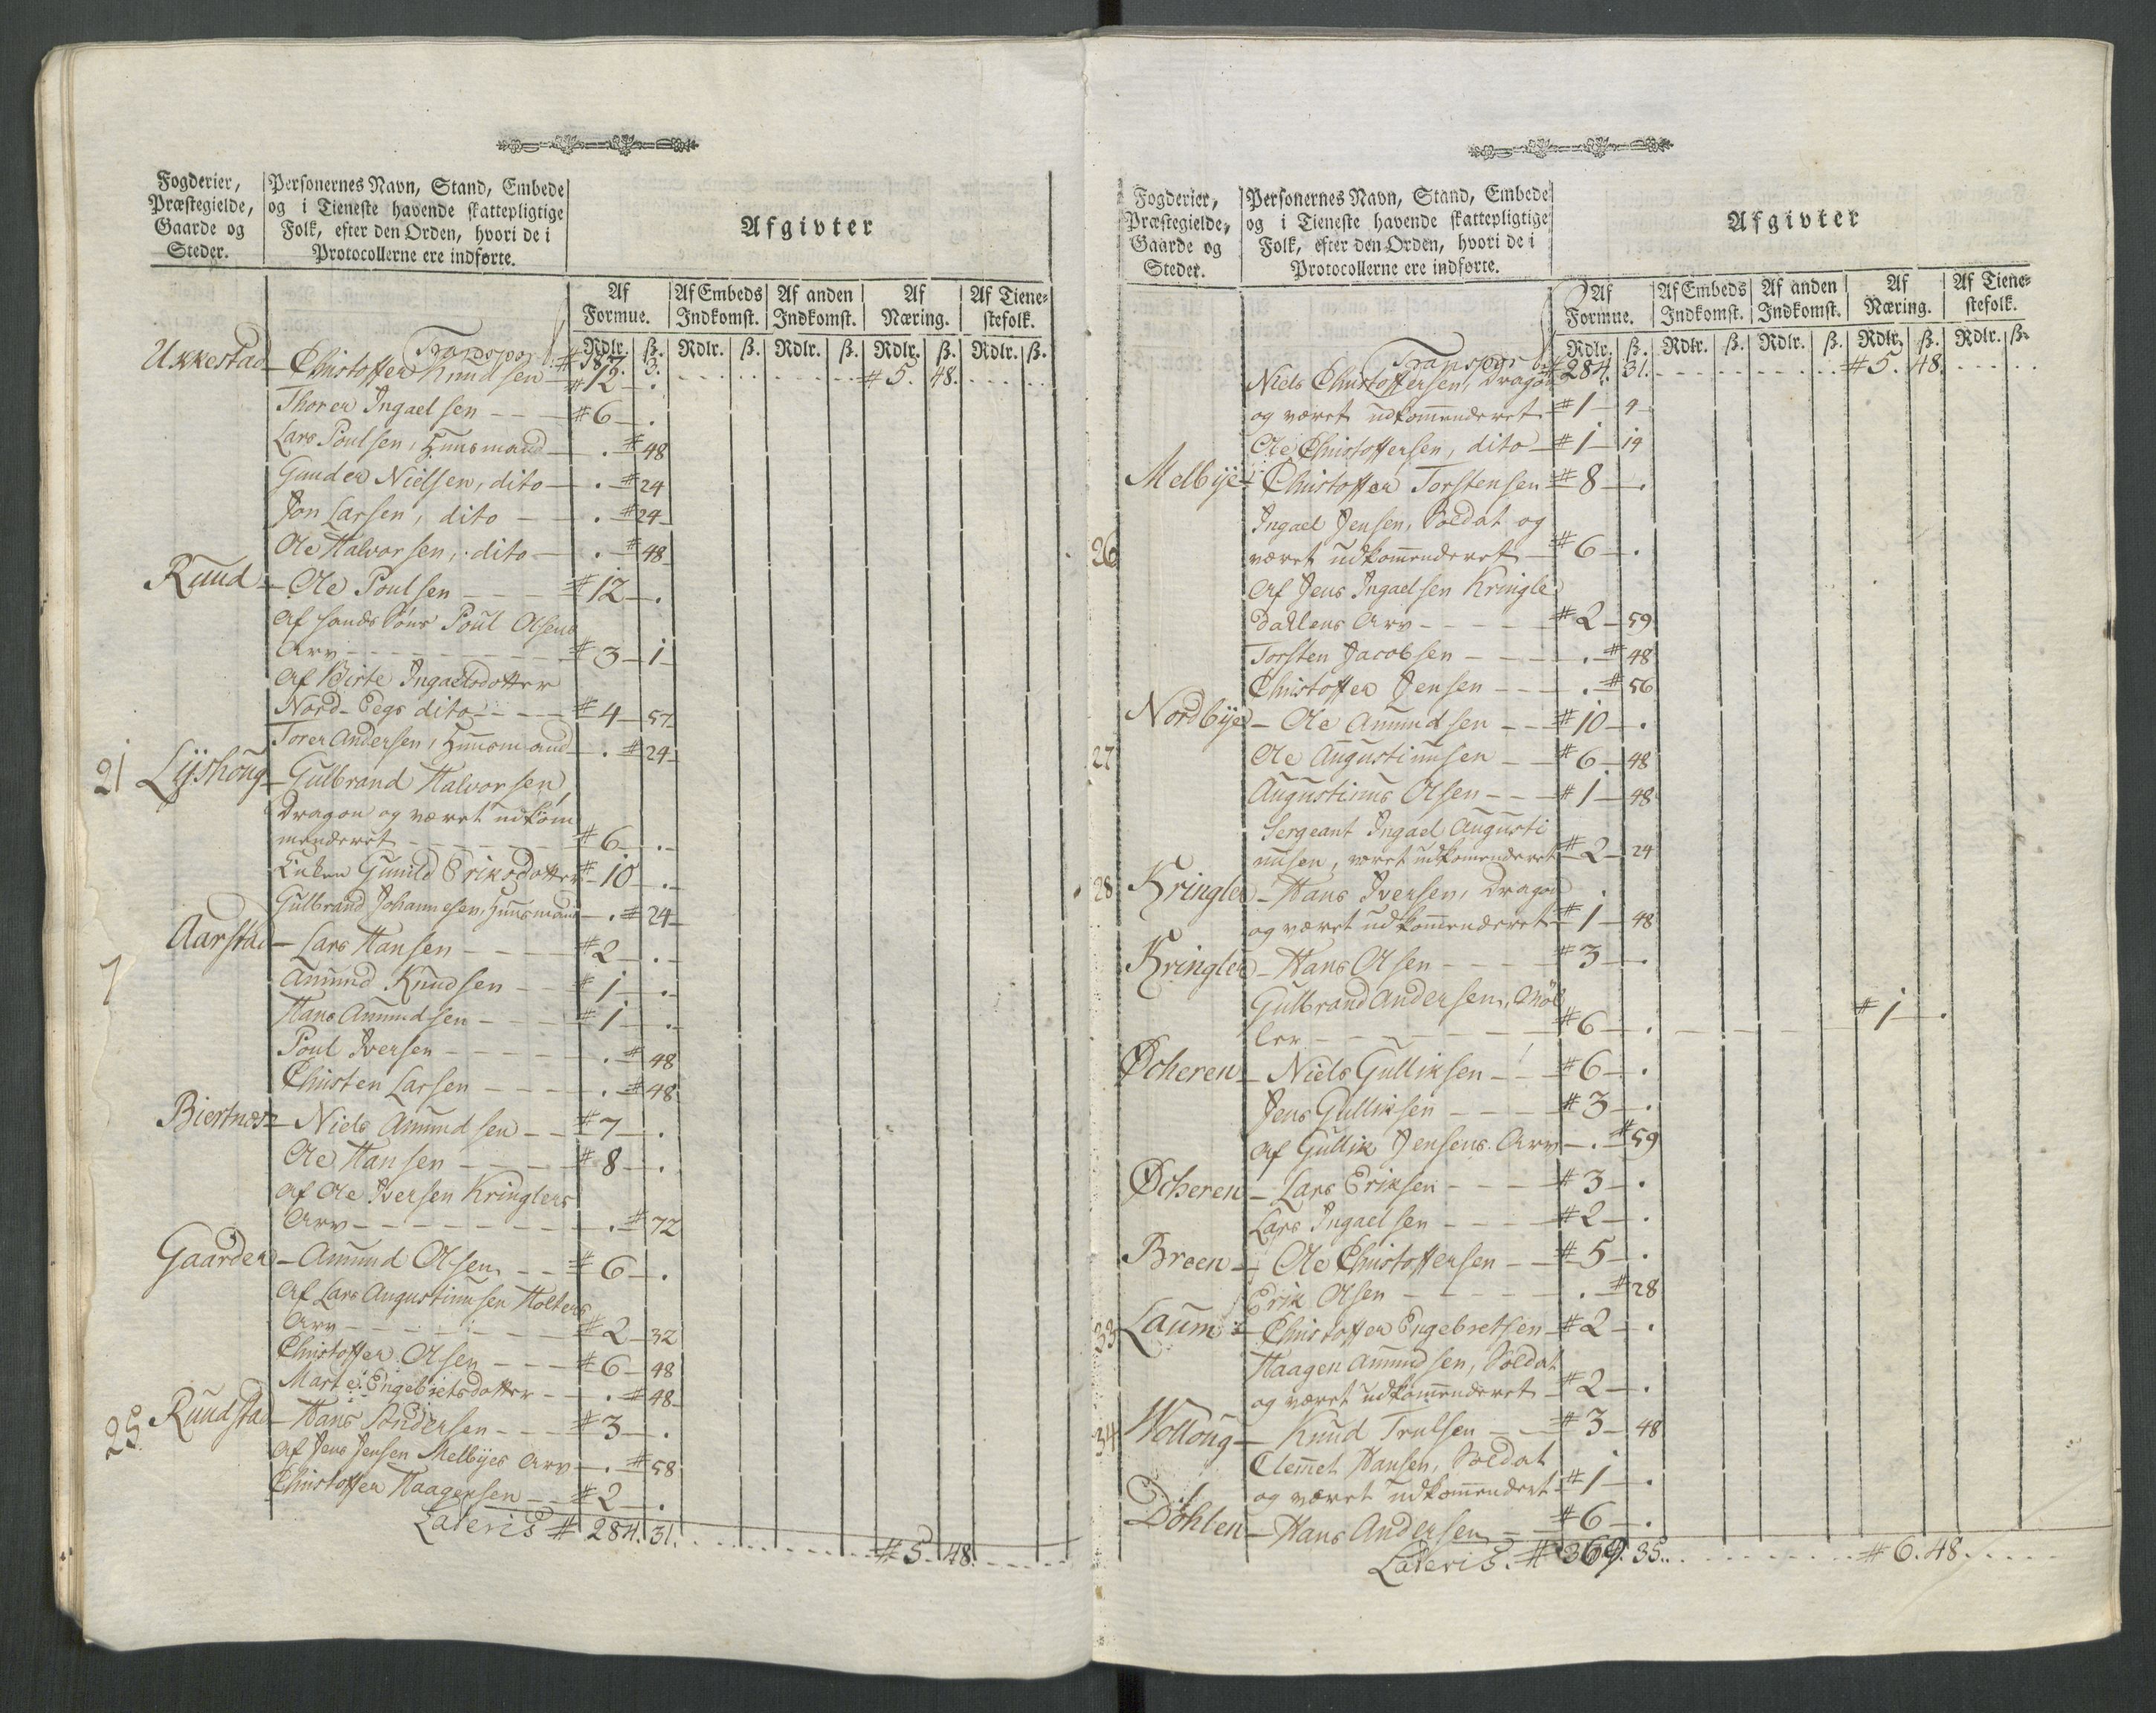 Fogderier, Præstegielde, Gaarde og Steder.
Personernes Navn, Stand, Embede og i Tieneste havende skattepligtige Folk, efter den Orden, hvori de i Protocollerne ere indførte.
Afgivter
Af Formue. Af Embeds Indkomst. Af anden Indkomst. Af Næring. Af Tienestefolk.
Rdlr. ß. Rdlr. ß. Rdlr. ß. Rdlr. ß. Rdlr. ß.
Transport # 187. 3. # 5. 48.
Ukkestad – Christoffer Knudsen – # 12 – .
Thorer Ingaelsen – – # 6 – .
Lars Poulsen, Huusmand – . # 48
Gunder Nielsen, dito – . # 24
Jon Larsen, dito – . # 24
Ole Halvorsen, dito – . # 48
Ruud – Ole Poulsen – – # 12 – .
Af hands Søns Poul Olsens
Arv – – – # 3 – 1
Af Birte Ingaelsdotter
Nord-Eegs dito – – # 4 – 57
Torer Andersen, Huusmand – . # 24
21 Lyshoug – Gulbrand Halvorsen,
Dragon og været udkom
menderet – – # 6 – .
Enken Gunild Eriksdotter # 10 – .
Gulbrand Johannesen, Huusmand – . # 24
Aarstad – Lars Hansen – – # 2 – .
7
Amund Knudsen – – # 1 – .
Hans Amundsen – – # 1 – .
Poul Iversen – – . # 48
Christen Larsen – – . # 48
Biertnæs – Niels Amundsen – – # 7 – .
Ole Hansen – – # 8 – .
Af Ole Iversen Kringlers
Arv – – – . # 72
Gaarder – Amund Olsen – – # 6 – .
Af Lars Augustinusen Holtens
Arv – – – # 2 – 32
Christoffer Olsen – – # 6 – 48
Marte Engebretsdotter – – . # 48
25 Ruudstad – Hans Andersen – – # 3 – .
Af Jens Jensen Melbyes Arv – . # 58
Christoffer Haagensen – – # 2 – .
Lateris # 284. 31. # 5. 48.
Fogderier, Præstegielde, Gaarde og Steder.
Personernes Navn, Stand, Embede og i Tieneste havende skattepligtige Folk, efter den Orden, hvori de i Protocollerne ere indførte.
Afgivter
Af Formue. Af Embeds Indkomst. Af anden Indkomst. Af Næring. Af Tienestefolk.
Rdlr. ß. Rdlr. ß. Rdlr. ß. Rdlr. ß. Rdlr. ß.
Transport # 284. 31. # 5. 48.
Niels Christoffersen, Dragon
og været udkommenderet # 1 – 9
Ole Christoffersen, dito – # 1 – 19
Melbye – Christoffer Torstensen # 8 – .
Ingael Jensen, Soldat og
26 været udkommenderet – # 6 – .
Af Jens Ingaelsen Kringle
dallens Arv – – # 2 – 59
Torsten Jacobsen – – . # 48
Christoffer Jensen – – . # 56
Nordbye – Ole Amundsen – – # 10 – .
27 Ole Augustinusen – – # 6 – 48
Augustinus Olsen – – # 1 – 48
Sergeant Ingael Augusti
nusen, været udkommenderet # 2 – 24
28 Kringler – Hans Iversen, Dragon
og været udkommenderet # 1 – 48
Kringler – Hans Olsen – – # 3 – .
Gulbrand Andersen, Møl
ler – – # 6 – . # 1 – .
Ocheren – Niels Gulliksen – – # 6 – .
Jens Gulliksen – – # 3 – .
Af Gullik Jensens Arv – . # 59
Ocheren – Lars Eriksen – – # 3 – .
Lars Ingaelsen – – # 2 – .
Breen – Ole Christoffersen – – # 5 – .
Erik Olsen – – . # 28
33 Laum – Christoffer Engebretsen – # 2 – .
Haagen Amundsen, Soldat
og været udkommenderet – # 2 – .
34 Wolloug – Knud Trulsen – – # 3 – 48
Clemet Hansen, Soldat
og været udkommendert # 1 – .
Døhlen – Hans Andersen – – # 6 – .
Lateris. # 369. 35. # 6. 48.